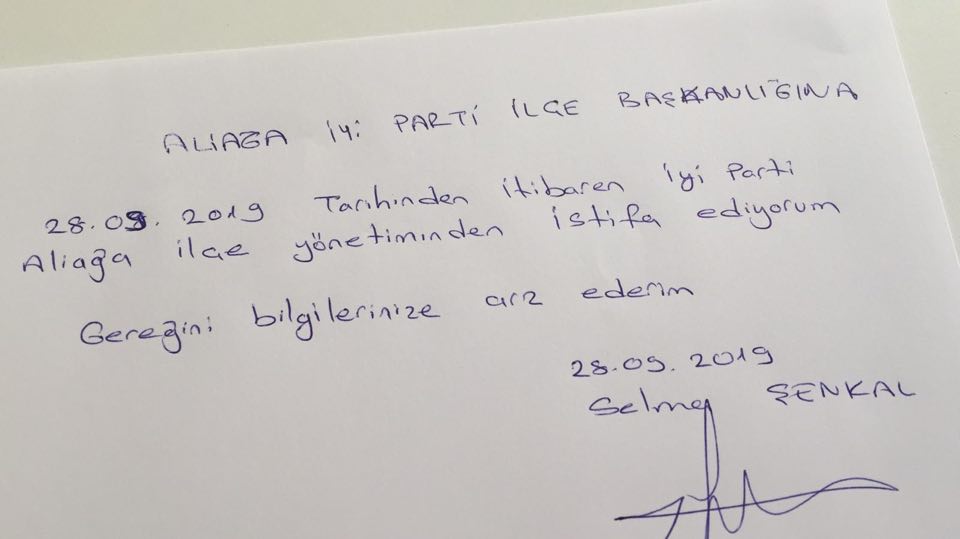 ALİAĞA İYİ PARTİ İLÇE BAŞKANLIĞINA
28.09.2019 Tarihinden itibaren İyi Parti
Aliağa ilçe yönetiminden istifa ediyorum
Gereğini bilgilerinize arz ederim
28.09.2019
Selma ŞENKAL